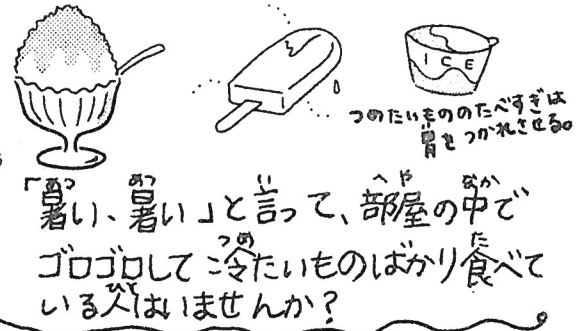 ICE
つめたいもののたべすぎは
胃をつかれさせる。
「暑い、暑い」と言って、部屋の中で
ゴロゴロして冷たいものばかり食べて
いる人はいませんか？